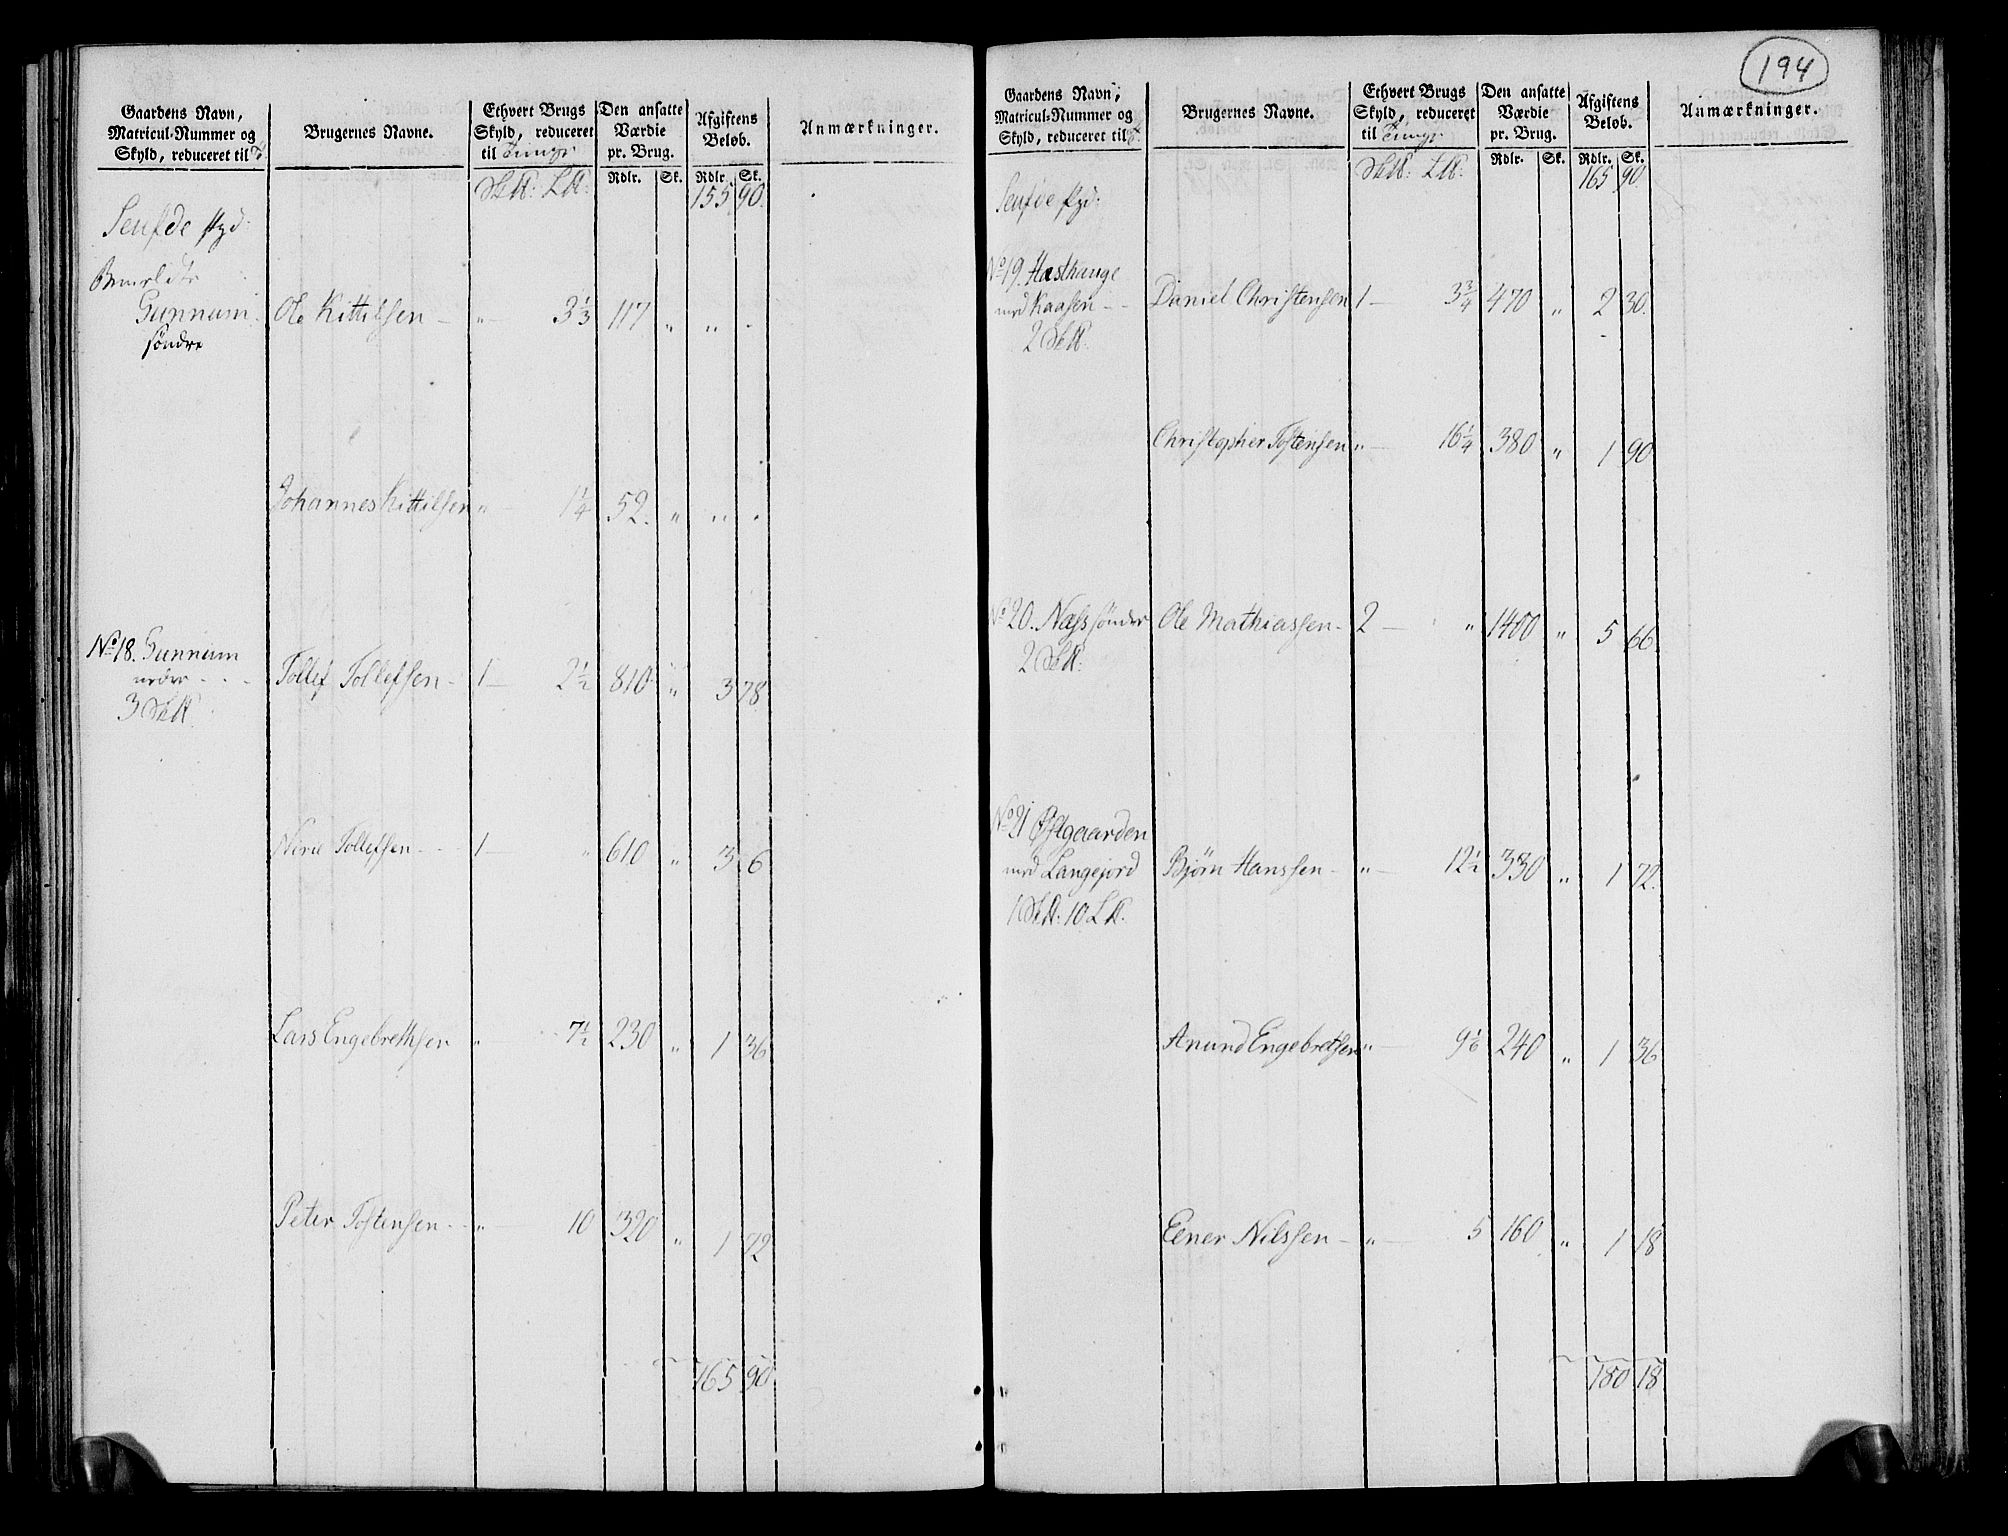 Gaardens Navn, Matricul-Nummer og Skyld, reduceret til
Brugernes Navne.
Ethvert Brugs Skyld, reduceret til
Den ansatte Værdie pr. Brug.
Afgiftens Beløb.
Anmærkninger.
Rdlr. Sk. Rdlr. Sk.
155 90.
Gunnum Ole Kittilsen - " 3 1/3 117 " " .
søndre
Johannes Kittilsen " 1 1/4 52. " " .
No 18. Gunnum
nedre - - - Tollef Tollefsen - 1 - 2 1/2 810 " 3 78.
3
Tollefsen - - 1 - " 610 " 3 6
Lars Engebrethsen " 7 1/2 230 " 1 36
Peter Tostensen - - " 10 320 " 1 72
165 90
194
Gaardens Navn, Matricul-Nummer og Skyld, reduceret til
Brugernes Navne.
Ethvert Brugs Skyld, reduceret til
Den ansatte Værdie pr. Brug.
Afgiftens Beløb.
Anmærkninger.
Rdlr. Sk. Rdlr. Sk.
165 90
No 19. Hæsthauge
med Kaasen - - Daniel Christensen 1 - 3 3/4 470 " 2 30.
2
Christopher Tostensen " - 16 1/4 380 " 1 90
No 20. Næss søndre Ole Mathiassen - 2 - " 1400 " 5 66.
2
No 21 Østgaarden
med Langejord Bjørn Hanssen - " - 12 1/2 330 " 1 72.
Anund Engebretsen " - 9 1/6 240 " 1 36
Eener Nilssen - " - 5 160 " 1 18
180 18